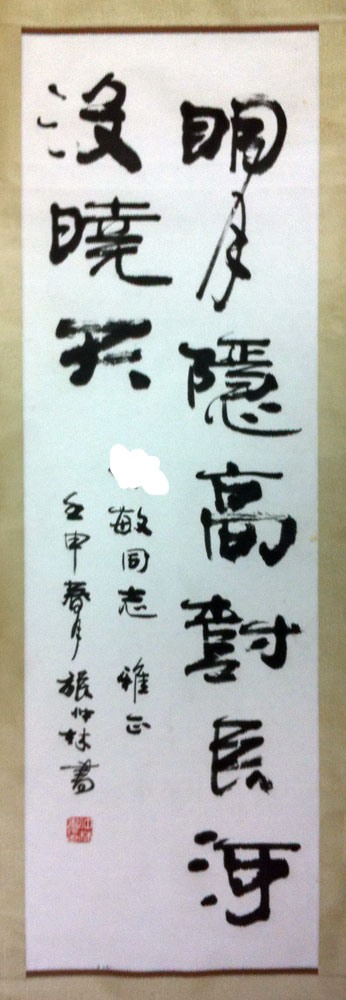 明月隱高樹長河
沒曉天
敏同志 雅正
壬申春月 林書